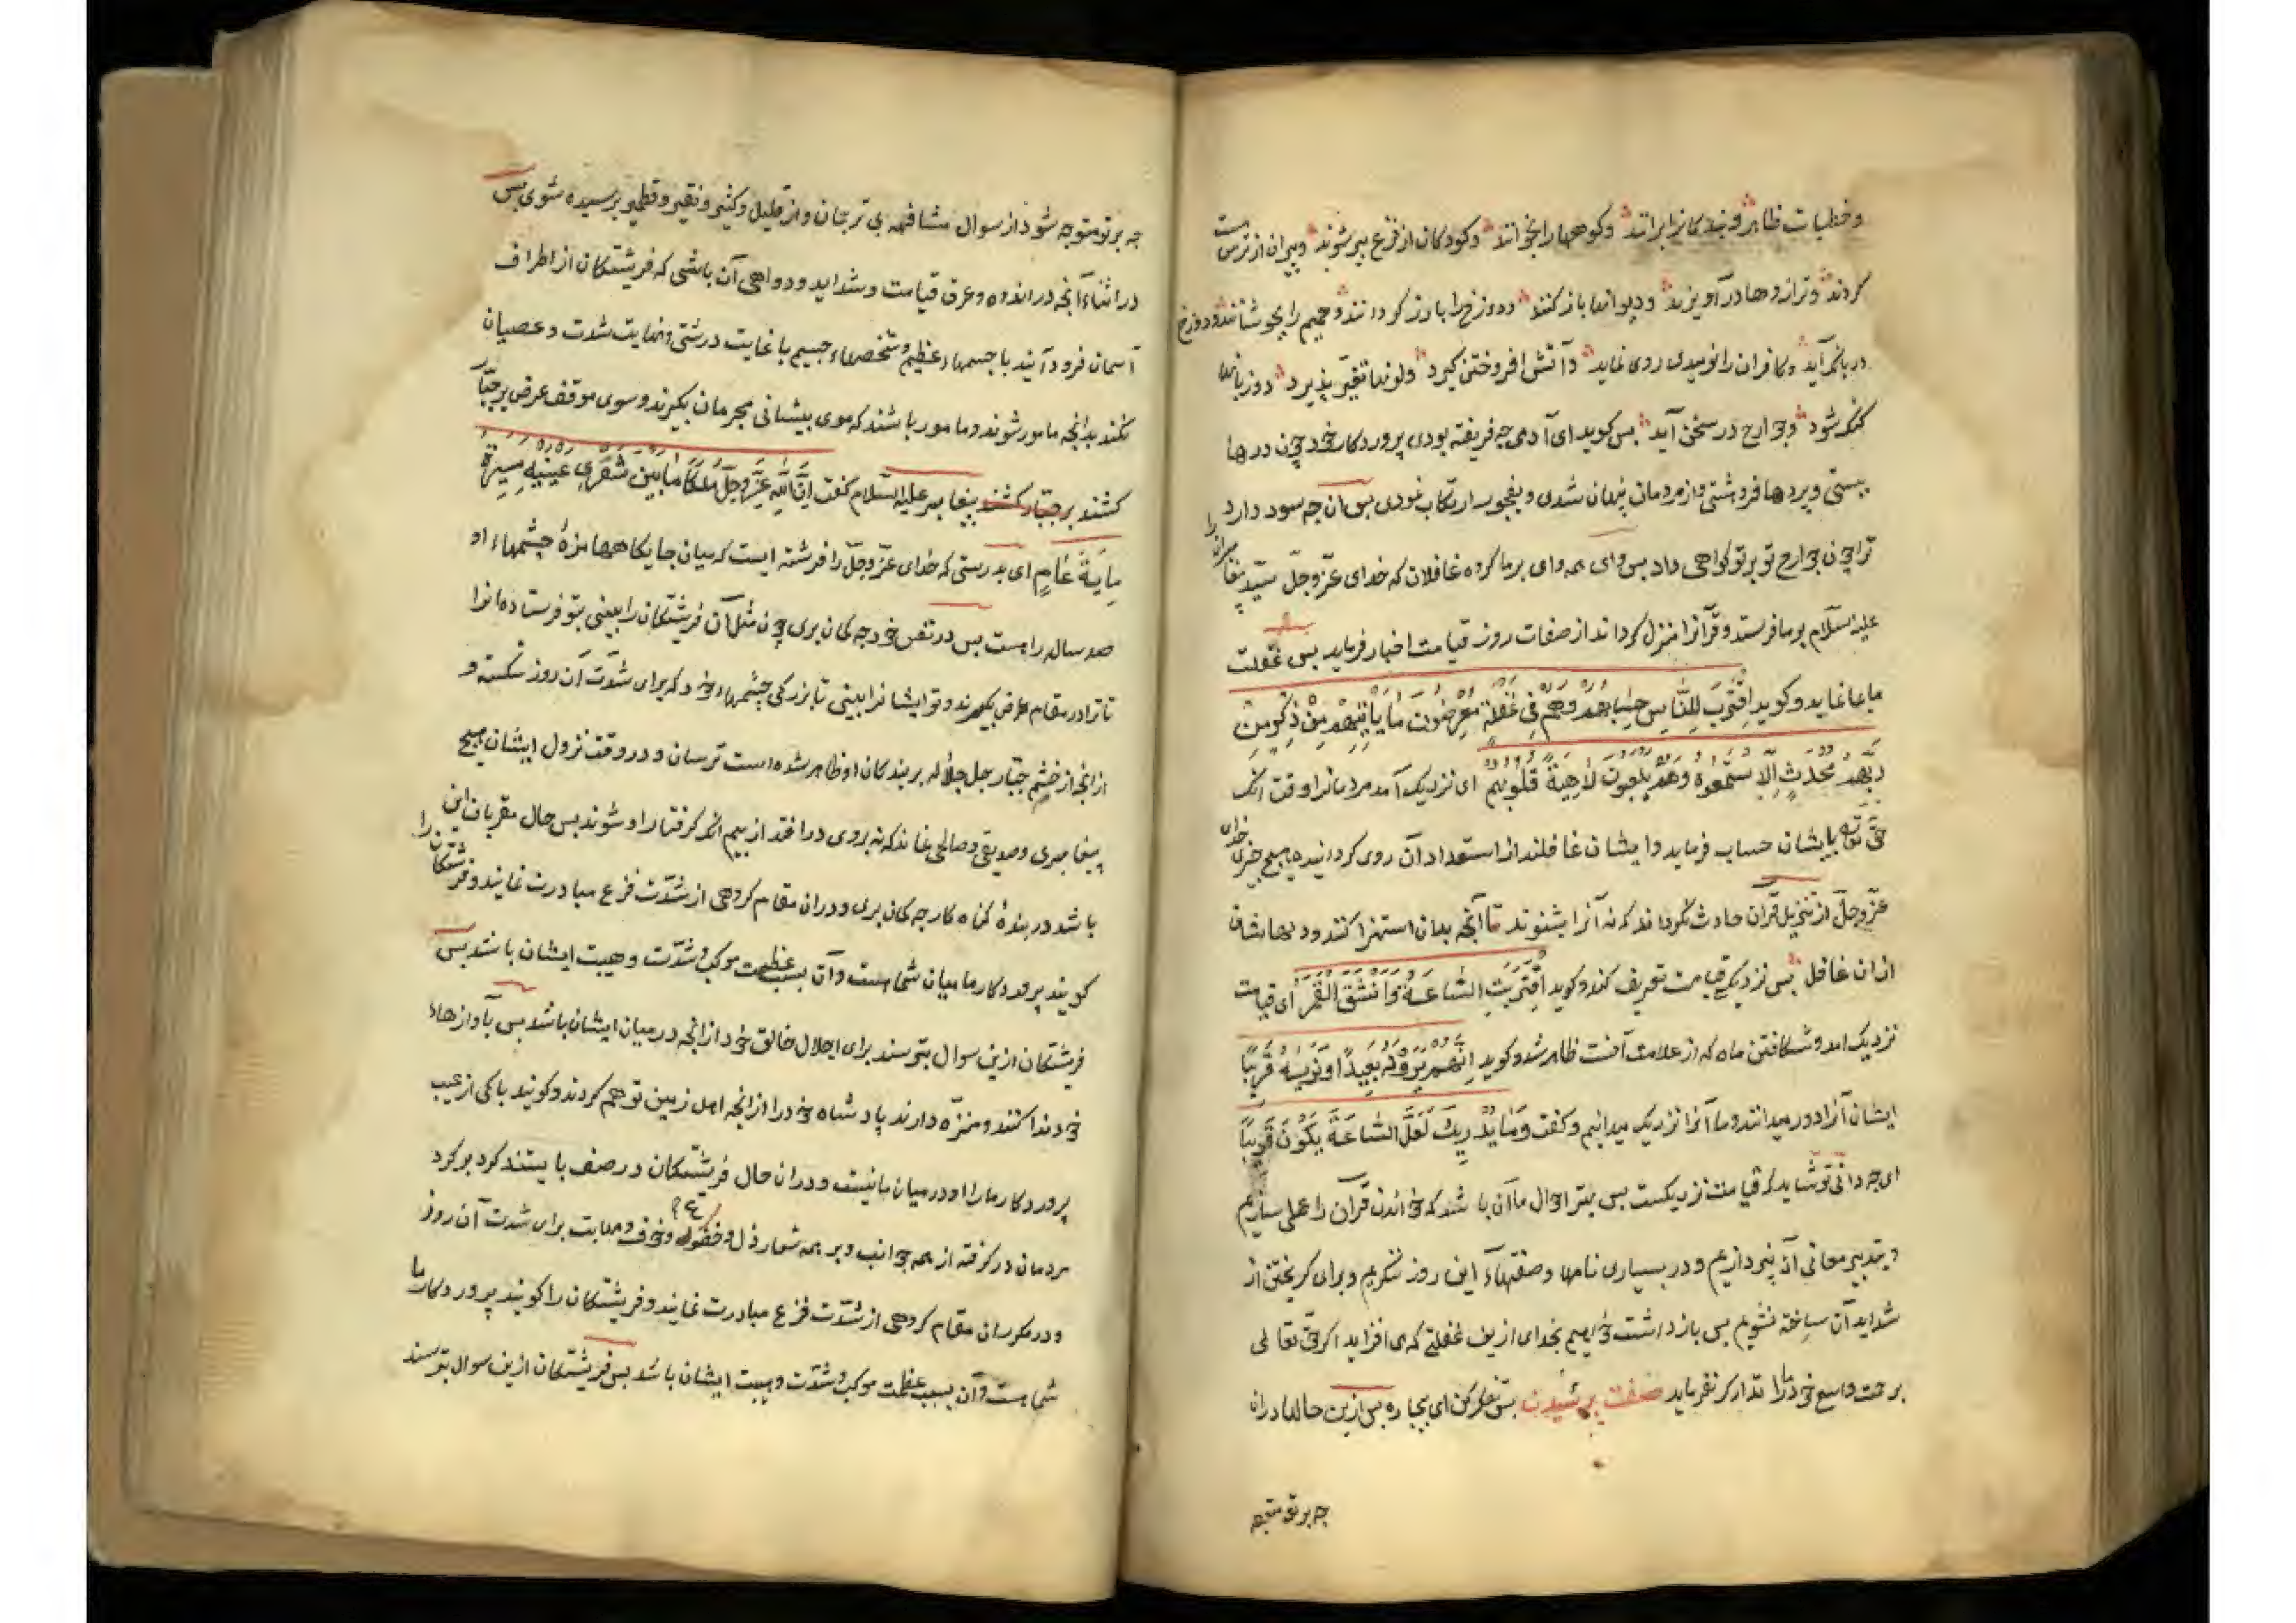 وخطیات ظاهر و بندکانرا برانند وکوهها را بخوانند وکودکان از فزع پیر شوند وپیران از ترس مست
کردند وترازوها درآویزند ودیوانها باز کنند ودوزخ را بارز کردانند وحمیم را بجوشانند ودوزخ
در بانک آید وکافران را نومیدی روی نماید وآتش افروختن کیرد ولونها تغیّر پذیرد وزبانها
کنک شود وجوارح در سخن آید بس کوید ای آدمی چه فریفته بودی بپروردکار خود چون درها
ببستی وپردها فروشتی واز مردمان پنهان شدی وبفجور ارتکاب نمودی بس آن چه سود دارد
ترا چون جوارح تو بر تو کواهی داد بس وای همه وای بر ما کروه غافلان که خدای عزّ وجلّ سیّد پیغامبران را
علیه السلام بر ما فرستد وقرآنرا منزل کرداند از صفات روز قیامت اخبار فرماید بس غفلت
ما بما نماید وکوید اِقْتَرَبَ لِلنَّاسِ حِسَابُهُمْ وَهُمْ فِی غَفْلَةٍ مُعْرِضُونَ مَا یَأْتِیهِمْ مِنْ ذِکْرٍ مِنْ
رَبِّهِمْ مُحْدَثٍ اِلَّا اسْتَمَعُوهُ وَهُمْ یَلْعَبُونَ لَاهِیَةً قُلُوبُهُمْ ای نزدیک آمد مردمانرا وقت آنک
حقّ تعه بایشان حساب فرماید وایشان غافلند از استعداد آن روی کردانیده هیچ چیزی خدای
عزّ وجلّ از تنزیل قرآن حادث نکرداند که نه آنرا بشنوند تا آنچه بدان استهزا کنند ودلها ایشان
ازان غافل بس نزدیکی قیامت تعریف کند وکوید اِقْتَرَبَتِ السَّاعَةُ وَانْشَقَّ الْقَمَرُ ای قیامت
نزدیک آمد وشکافتن ماه که از علامت آنست ظاهر شد وکوید اِنَّهُمْ یَرَوْنَهُ بَعِیدًا وَنَرَیٰهُ قَرِیبًا
ایشان آنرا دور میدانند وما آنرا نزدیک میدانیم وکفت وَمَا یُدْرِیکَ لَعَلَّ السَّاعَةَ یَکُونُ قَرِیبًا
ای چه دانی تو شاید که قیامت نزدیکست بس بهتر احوال ما آن باشد که خواندن قرآن را عملی سازیم
وبتدبیر معانی آن پردازیم ودر بسیاری نامها وصفتهاء این روز ننکریم وبرای کریختن از
شداید آن ساخته نشویم بس بازداشت خواهیم بخدای ازین غفلتی که می افزاید اکر حق تعالی
برحمت واسع خود ما را تدارک نفرماید صفت پرسیدن بس تفکر کن ای بیچاره بس ازین حالها دران
چه بر تو متوجه
چه بر تو متوجه شود از سوال مشافهه بی ترجمان واز قلیل وکثیر ونقیر وقطمیر پرسیده شوی بس
در اثناء آنچه در اندوه وعرق قیامت وشداید ودواهی آن باشی که فریشتکان از اطراف
آسمان فرود آیند با جسمهاء عظیم وشخصهاء جسیم با غایت درشتی ونهایت شدت وعصیان
نکنند بدانچه مامور شوند ومامور باشند که موی پیشانی مجرمان بکیرند وسوی موقف عرض بر جبّار
کشند بر جبّار کشند پیغامبر علیه السّلام کفت اِنَّ لِلّٰهِ عَزَّ وَجَلَّ مَلَکًا مَا بَیْنَ شُفْرَیْ عَیْنَیْهِ مَسِیرَةُ
مِایَةِ عَامٍ ای بدرستی که خدای عزّ وجلّ را فرشته ایست که میان جایکاهها مژهٔ چشمهاء او
صد ساله راهست بس در نفس خود چه کمان بری چون مثل آن فریشتکان را بینی بتو فرستاده انرا
تا ترا در مقام عرض بکیرند وتو ایشانرا بینی تا بزرکی چشمهاء خود کر برای شدّت آن روز شکسته و
از آنچه از خشم جبّار جل جلاله بر بندکان او ظاهر شده است ترسان ودر وقت نزول ایشان هیچ
پیغامبری وصدیقی وصالحی نماند که نه بروی درافتد از بیم آنکه کرفتار او شوند بس حال مقربان این
باشد در بندهٔ کناه کار چه کمان بری ودران مقام کروهی از شدّت فزع مبادرت نمایند وفرشتکان را
کویند پروردکار ما میان شماست وآن بسبب عظمت موکب وشدّت وهیبت ایشان باشد بس
فریشتکان ازین سوال بترسند برای اجلال خالق خود از آنچه در میان ایشان باشد بس بآوازهاء
خود ندا کنند ومنزّه دارند پادشاه خود را از آنچه اهل زمین توهم کردند وکویند پاکی از عیب
پروردکار ما را او در میان ما نیست ودران حال فریشتکان در صف بایستند کرد بر کرد
مردمان درکرفته از همه جوانب وبر همه شعار ذل وخضوع وخوف ومهابت برای شدت آن روز
ودر مکرران مقام کروهی از شدّت فزع مبادرت نمایند وفریشتکان را کویند پروردکار ما
شماست وآن بسبب عظمت موکب وشدّت وهیبت ایشان باشد بس فریشتکان ازین سوال بترسند